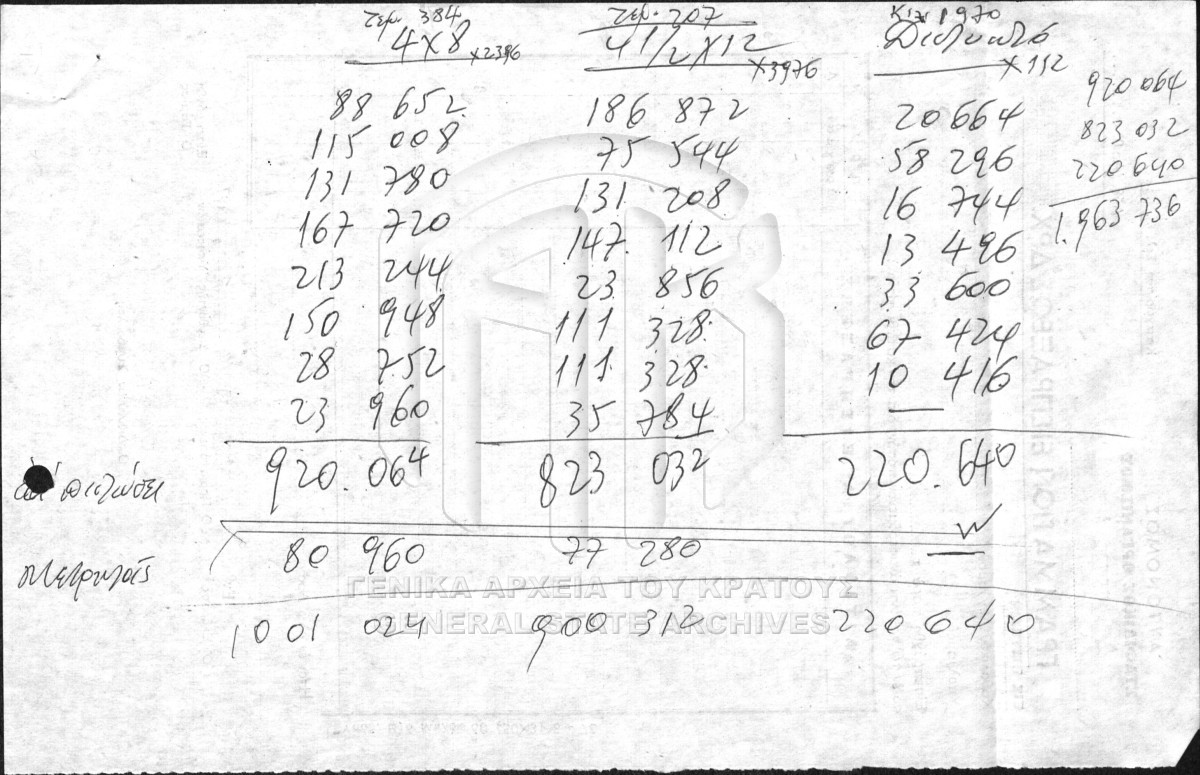 τεμ. 384 τεμ. 207 Κιλ 1970
4 X 8 4 1/2 X 12 Δικτυωτό
x2396 x3976 x112
88 652 186 872 20 664 920 064
115 008 75 544 58 296 823 032
131 780 131 208 16 744 220 640
167 720 147. 112 13 496 1.963 736
213 244 23 856 33 600
150 948 111 328 67 424
28 752 111 328 10 416
23 960 35 784
επί πιστώσει 920.064 823 032 220.640
Μετρητοίς 80 960 77 280 —
1001 024 900 312 220 640
ΓΕΝΙΚΑ ΑΡΧΕΙΑ ΤΟΥ ΚΡΑΤΟΥΣ
GENERAL STATE ARCHIVES